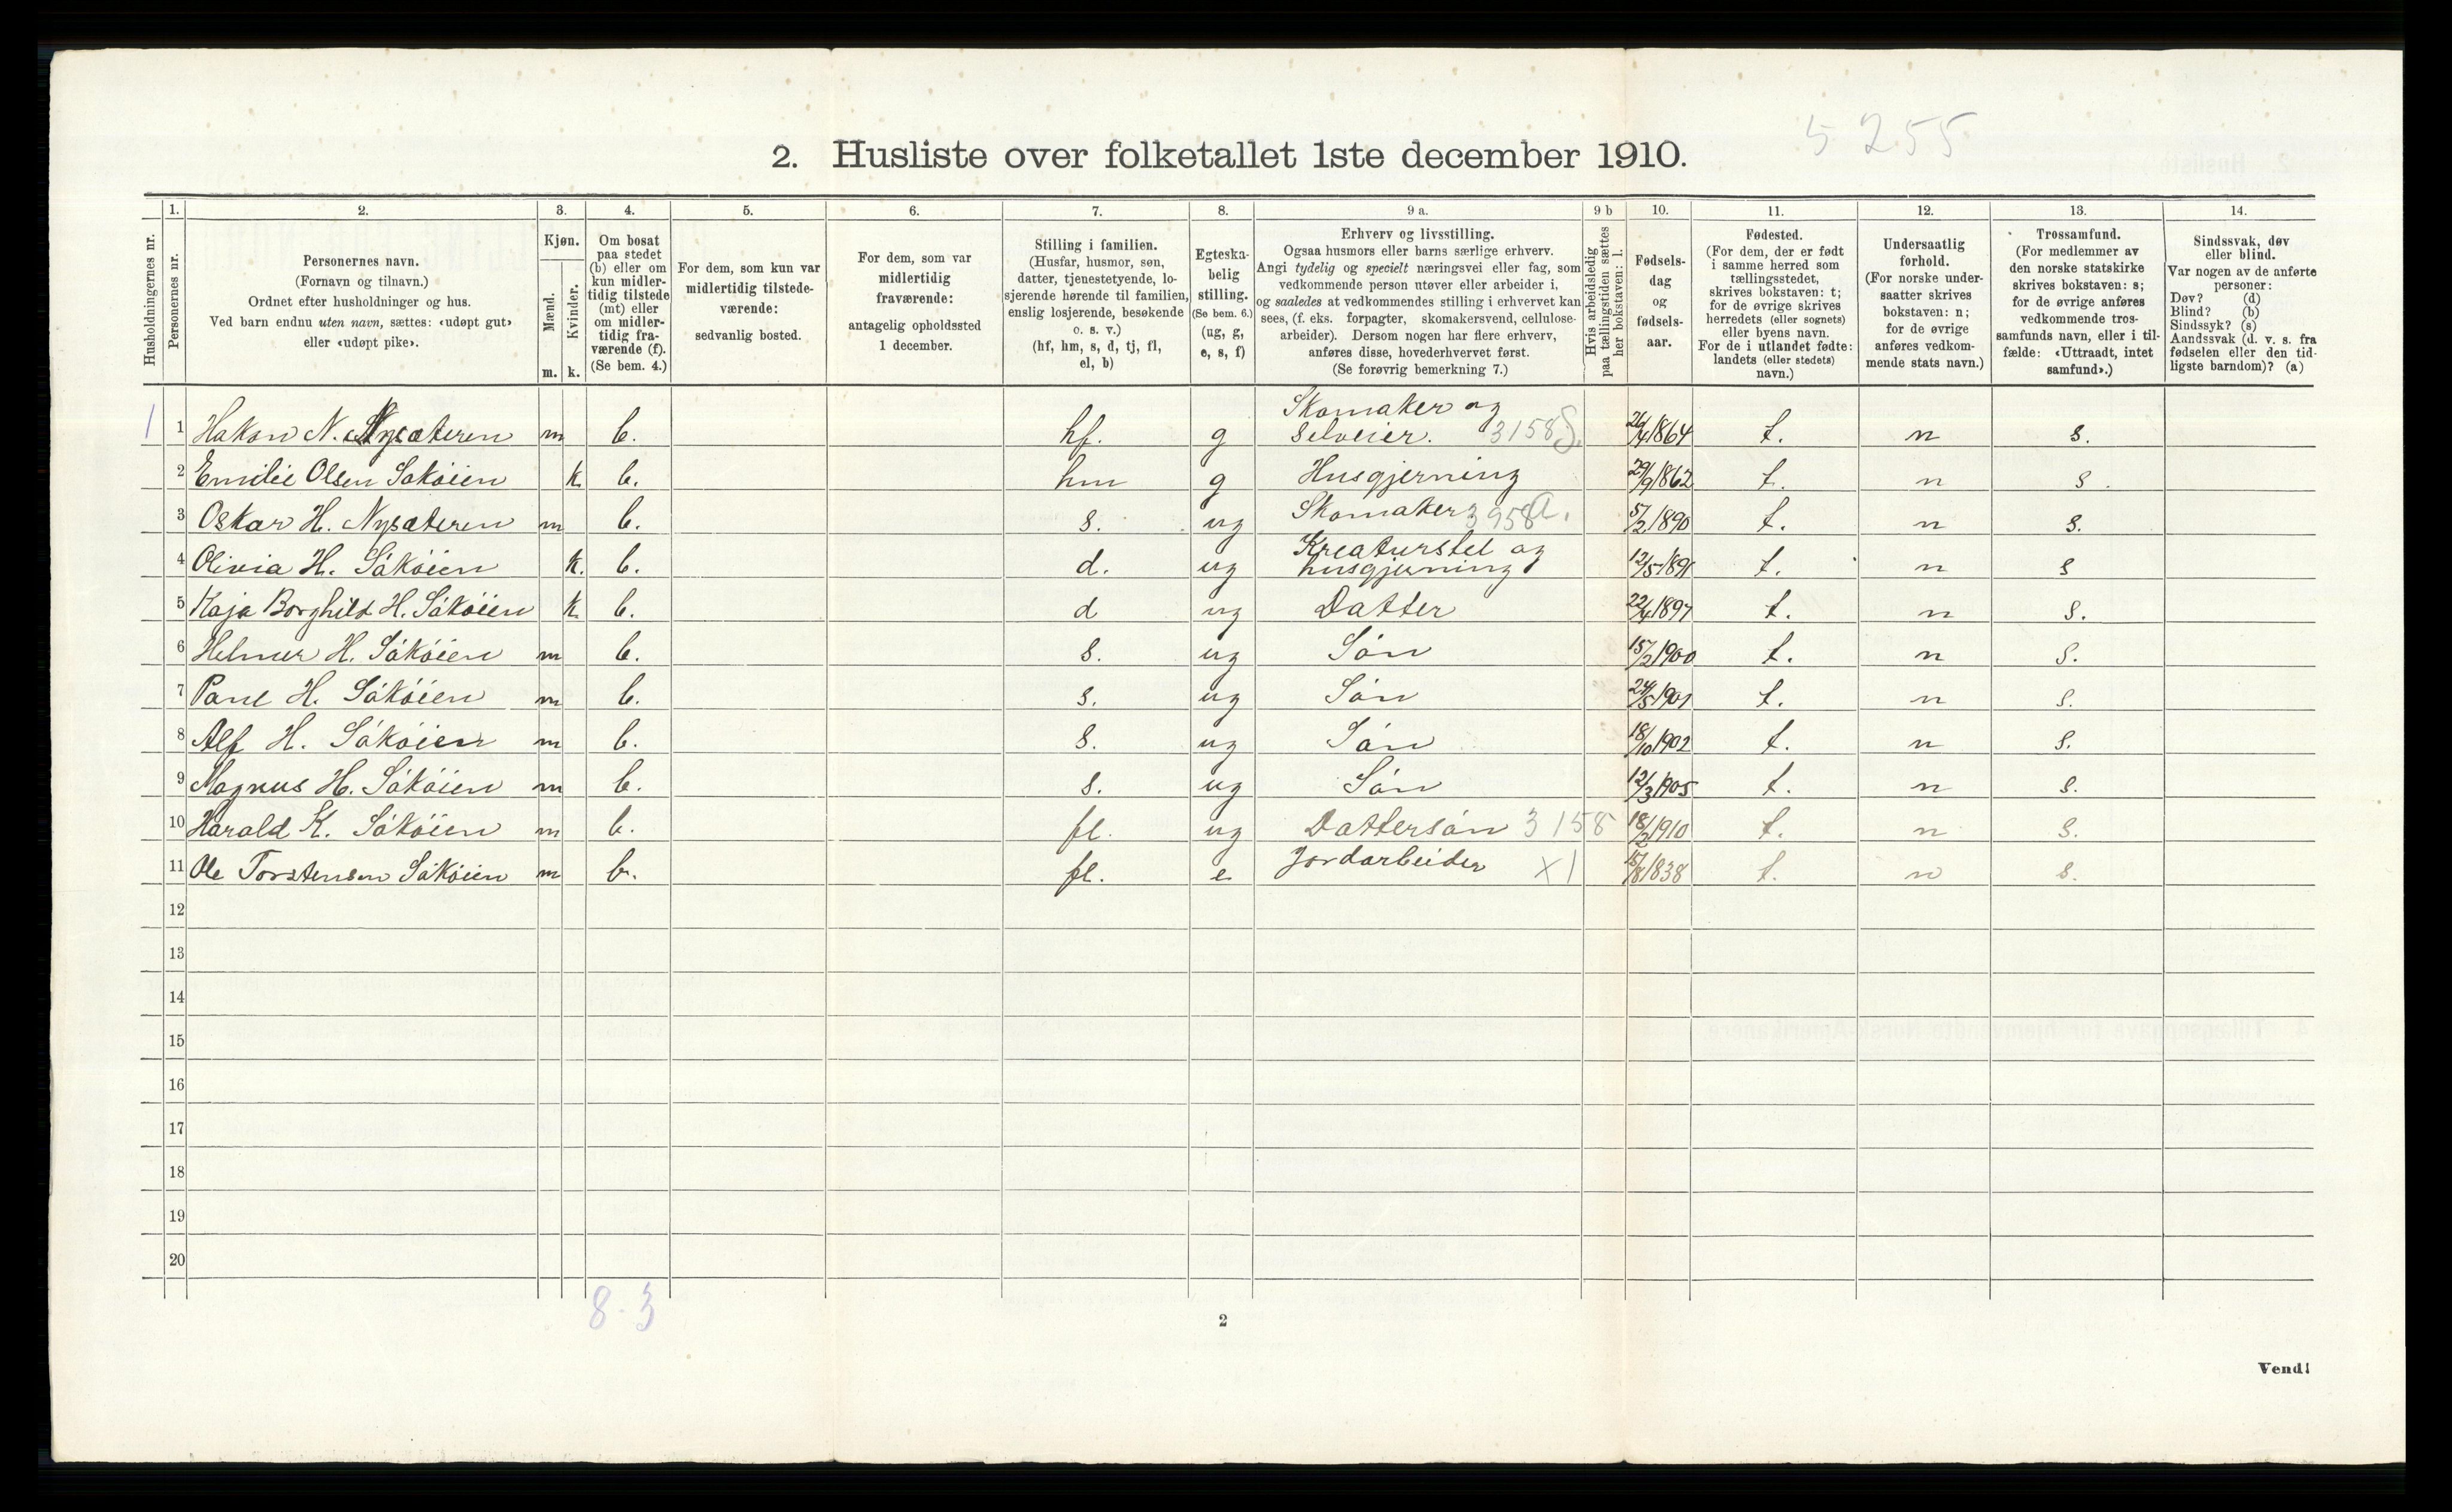 5255
2. Husliste over folketallet 1ste december 1910.
Husholdningernes nr.
1. Personernes nr.
2. Personernes navn.
(Fornavn og tilnavn.)
Ordnet efter husholdninger og hus.
Ved barn endnu uten navn, sættes: «udøpt gut»
eller «udøpt pike».
3. Kjøn.
Mænd. m.
Kvinder. k.
4. Om bosat
paa stedet
(b) eller om
kun midler-
tidig tilstede
(mt) eller
om midler-
tidig fra-
værende (f).
(Se bem. 4.)
5. For dem, som kun var
midlertidig tilstede-
værende:
sedvanlig bosted.
6. For dem, som var
midlertidig
fraværende:
antagelig opholdssted
1 december.
7. Stilling i familien.
(Husfar, husmor, søn,
datter, tjenestetyende, lo-
sjerende hørende til familien,
enslig losjerende, besøkende
o. s. v.)
(hf, hm, s, d, tj, fl,
el, b)
8. Egteska-
belig
stilling.
(Se bem. 6.)
(ug, g,
e, s, f)
9 a. Erhverv og livsstilling.
Ogsaa husmors eller barns særlige erhverv.
Angi tydelig og specielt næringsvei eller fag, som
vedkommende person utøver eller arbeider i,
og saaledes at vedkommendes stilling i erhvervet kan
sees, (f. eks. forpagter, skomakersvend, cellulose-
arbeider). Dersom nogen har flere erhverv,
anføres disse, hovederhvervet først.
(Se forøvrig bemerkning 7.)
9 b Hvis arbeidsledig
paa tællingstiden sættes
her bokstaven: l.
10. Fødsels-
dag
og
fødsels-
aar.
11. Fødested.
(For dem, der er født
i samme herred som
tællingsstedet,
skrives bokstaven: t;
for de øvrige skrives
herredets (eller sognets)
eller byens navn.
For de i utlandet fødte:
landets (eller stedets)
navn.)
12. Undersaatlig
forhold.
(For norske under-
saatter skrives
bokstaven: n;
for de øvrige
anføres vedkom-
mende stats navn.)
13. Trossamfund.
(For medlemmer av
den norske statskirke
skrives bokstaven: s;
for de øvrige anføres
vedkommende tros-
samfunds navn, eller i til-
fælde: «Uttraadt, intet
samfund».)
14. Sindssvak, døv
eller blind.
Var nogen av de anførte
personer:
Døv? (d)
Blind? (b)
Sindssyk? (s)
Aandssvak (d. v. s. fra
fødselen eller den tid-
ligste barndom)? (a)
1 1 Hakon N. Nysæteren m b. hf. g Skomaker og selveier. 3158 S. 26/4 1864 t. n s.
2 Emilie Olsen Sakøien k. b. hm g Husgjerning 29/9 1862 t. n s.
3 Oskar H. Nysæteren m b. s. ug Skomaker 3958 a. 5/2 1890 t. n s.
4 Olivia H. Såkøien k. b. d. ug Kreaturstel og husgjerning 12/5 1891 t. n s
5 Kaja Borghild H. Såkøien k. b. d ug Datter 22/4 1897 t. n s.
6 Helmer H. Såkøien m b. s. ug Søn 15/2 1900 t. n s.
7 Paul H. Såkøien m b. s. ug Søn 24/5 1901 t. n s.
8 Alf H. Såkøien m b. s. ug Søn 18/10 1902 t. n s.
9 Magnus H. Såkøien m b. s. ug Søn 12/3 1905 t. n s.
10 Harald K. Såkøien m b. fl. ug Dattersøn 3158 18/2 1910 t. n s.
11 Ole Torstensen Såkøien m b. fl. e Jordarbeider X1 15/8 1838 t. n s.
12
13
14
15
16
17
18
19
20
8-3
2
Vend!